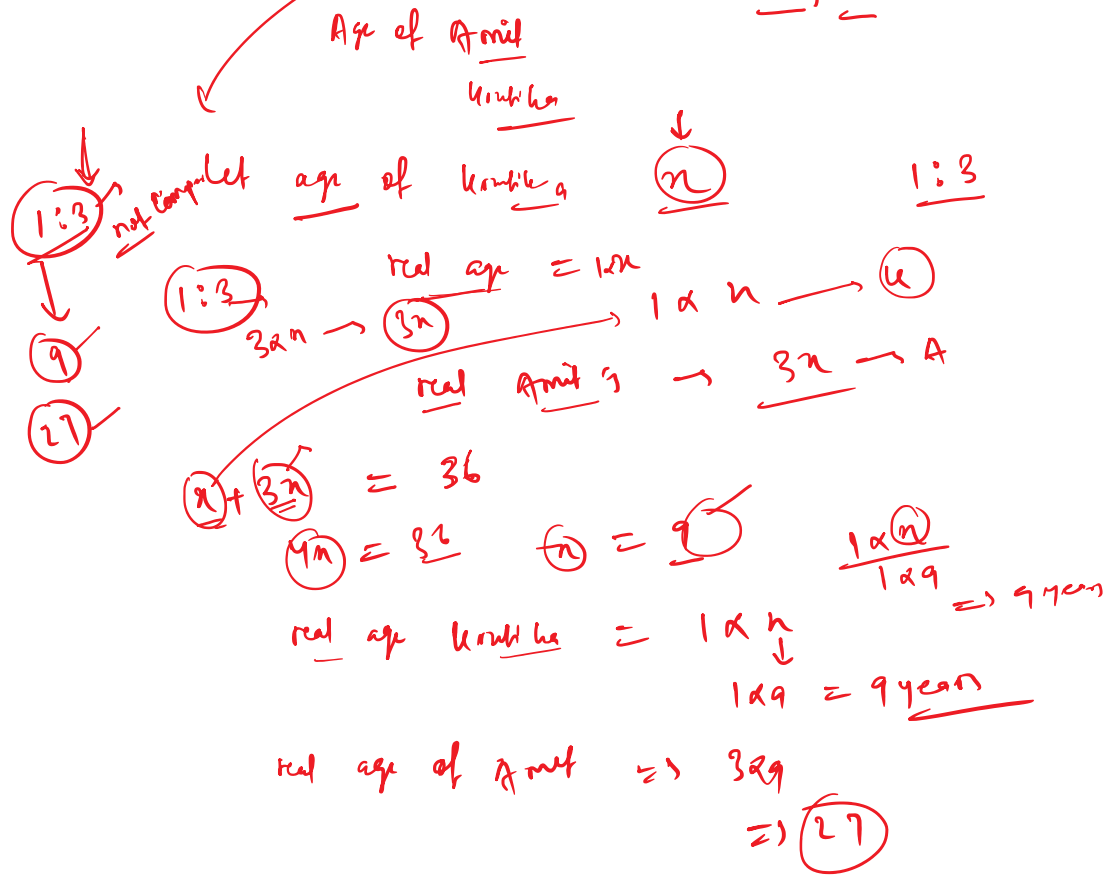 Age of Amit
Kroutika
Let age of Kroutika x 1:3
1:3 not
real age = 1×x
1:3 3×x → 3x 1 × x → K
real Amit's → 3x → A
9
27
x + 3x = 36
4x = 36 x = 9
1×x
1×9
=> 9 years
real age Kroutika = 1 × x
1×9 = 9 years
real age of Amit => 3×9
=> 27